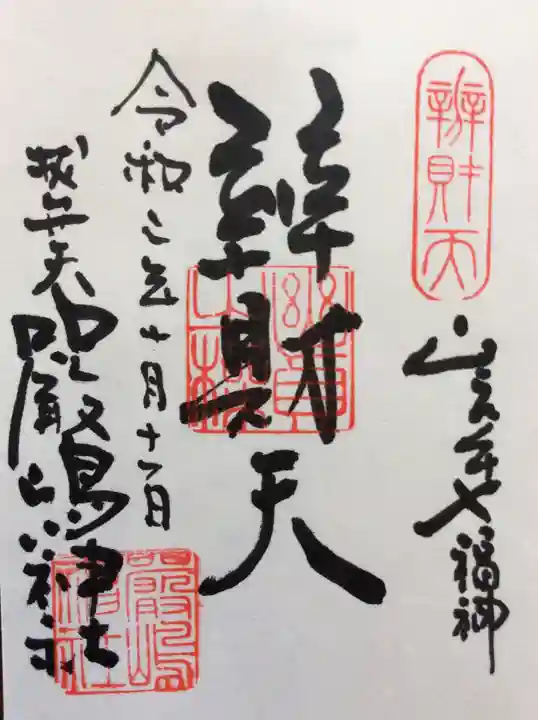 辨財天
山之手七福神
辨財天
令和 年十月十一日
抜弁天 嚴嶋神社
嚴嶋神社